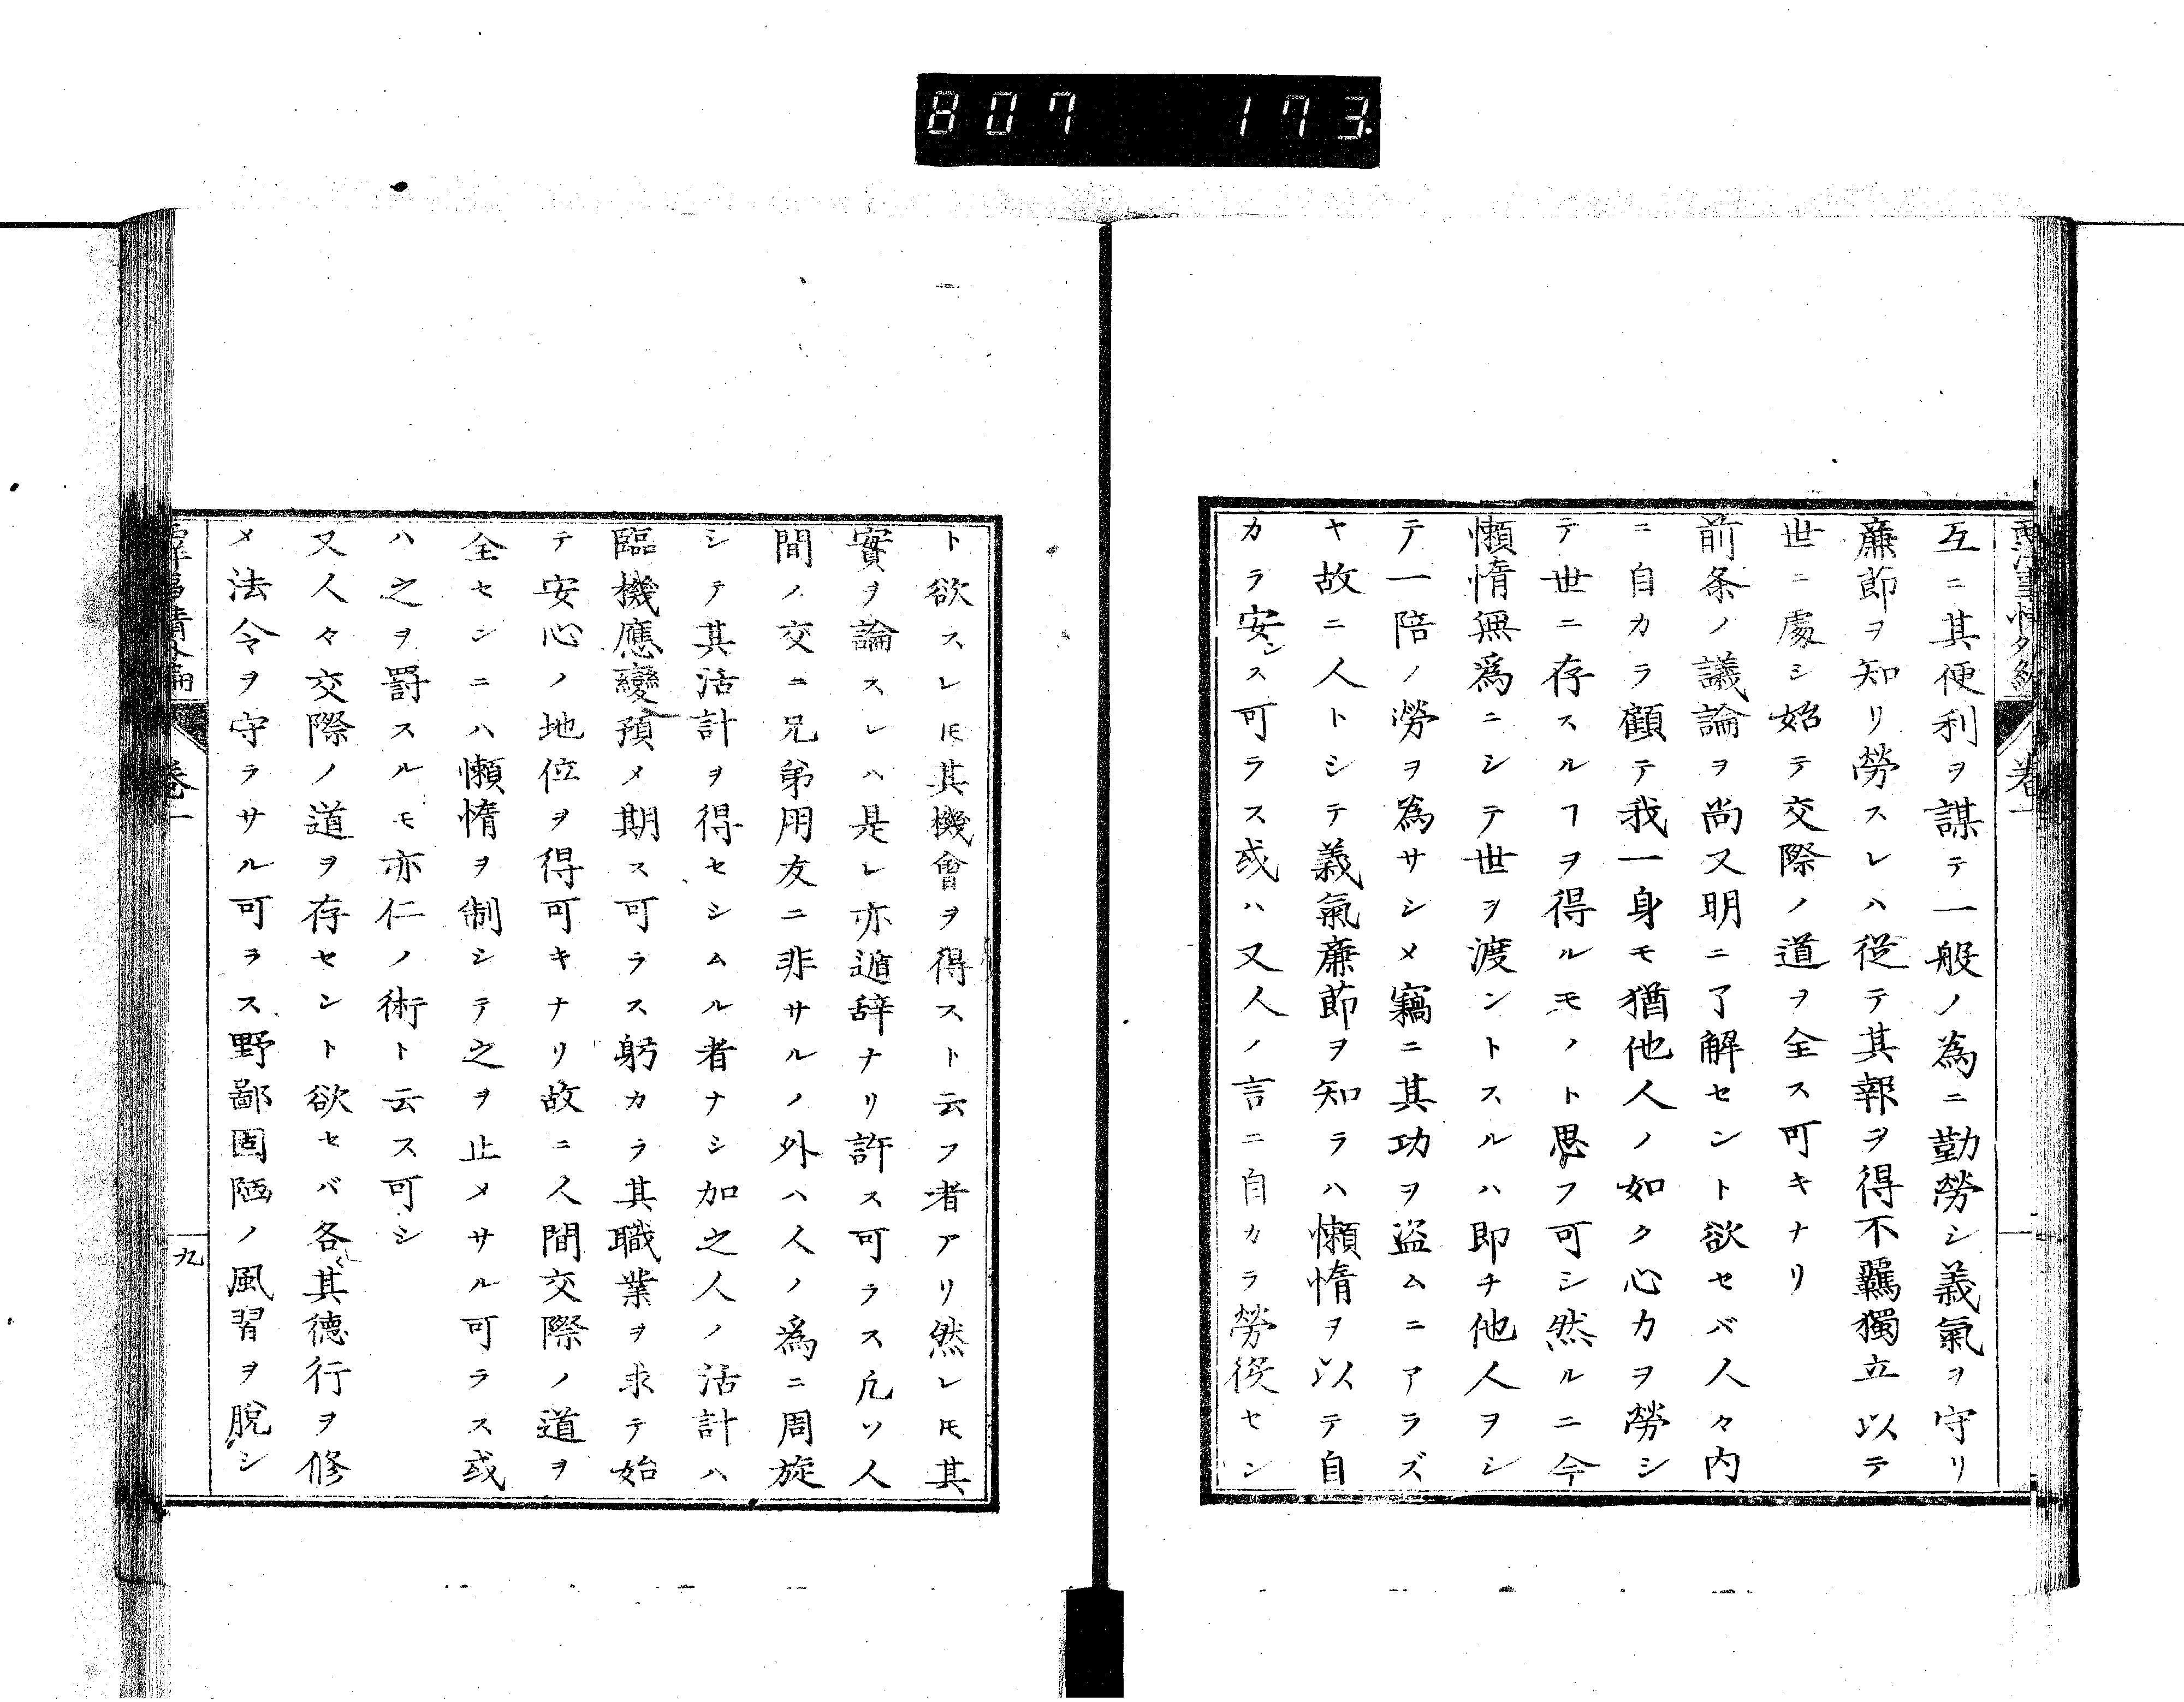 807 173.
西洋事情外編 卷一
互ニ其便利ヲ謀テ一般ノ為ニ勤勞シ義氣ヲ守リ
廉節ヲ知リ勞スレハ從テ其報ヲ得不羈獨立以テ
世ニ處シ始テ交際ノ道ヲ全ス可キナリ
前条ノ議論ヲ尚又明ニ了解セント欲セバ人々内
ニ自カラ顧テ我一身モ猶他人ノ如ク心力ヲ勞シ
テ世ニ存スルヿヲ得ルモノト思フ可シ然ルニ今
懶惰無爲ニシテ世ヲ渡ントスルハ即チ他人ヲシ
テ一陪ノ勞ヲ為サシメ竊ニ其功ヲ盗ムニアラズ
ヤ故ニ人トシテ義氣廉節ヲ知ラハ懶惰ヲ以テ自
カラ安ンス可ラス或ハ又人ノ言ニ自カラ勞役セン
ト欲スレ𪜈其機會ヲ得スト云フ者アリ然レ𪜈其
實ヲ論スレハ是レ亦遁辞ナリ許ス可ラス凡ソ人
間ノ交ニ兄弟用友ニ非サルノ外ハ人ノ爲ニ周旋
シテ其活計ヲ得セシムル者ナシ加之人ノ活計ハ
臨機應變預メ期ス可ラス躬カラ其職業ヲ求テ始
テ安心ノ地位ヲ得可キナリ故ニ人間交際ノ道ヲ
全センニハ懶惰ヲ制シテ之ヲ止メサル可ラス或
ハ之ヲ罸スルモ亦仁ノ術ト云ス可シ
又人々交際ノ道ヲ存セント欲セバ各〻其德行ヲ修
メ法令ヲ守ラサル可ラス野鄙固陋ノ風習ヲ脫シ
卷一
九